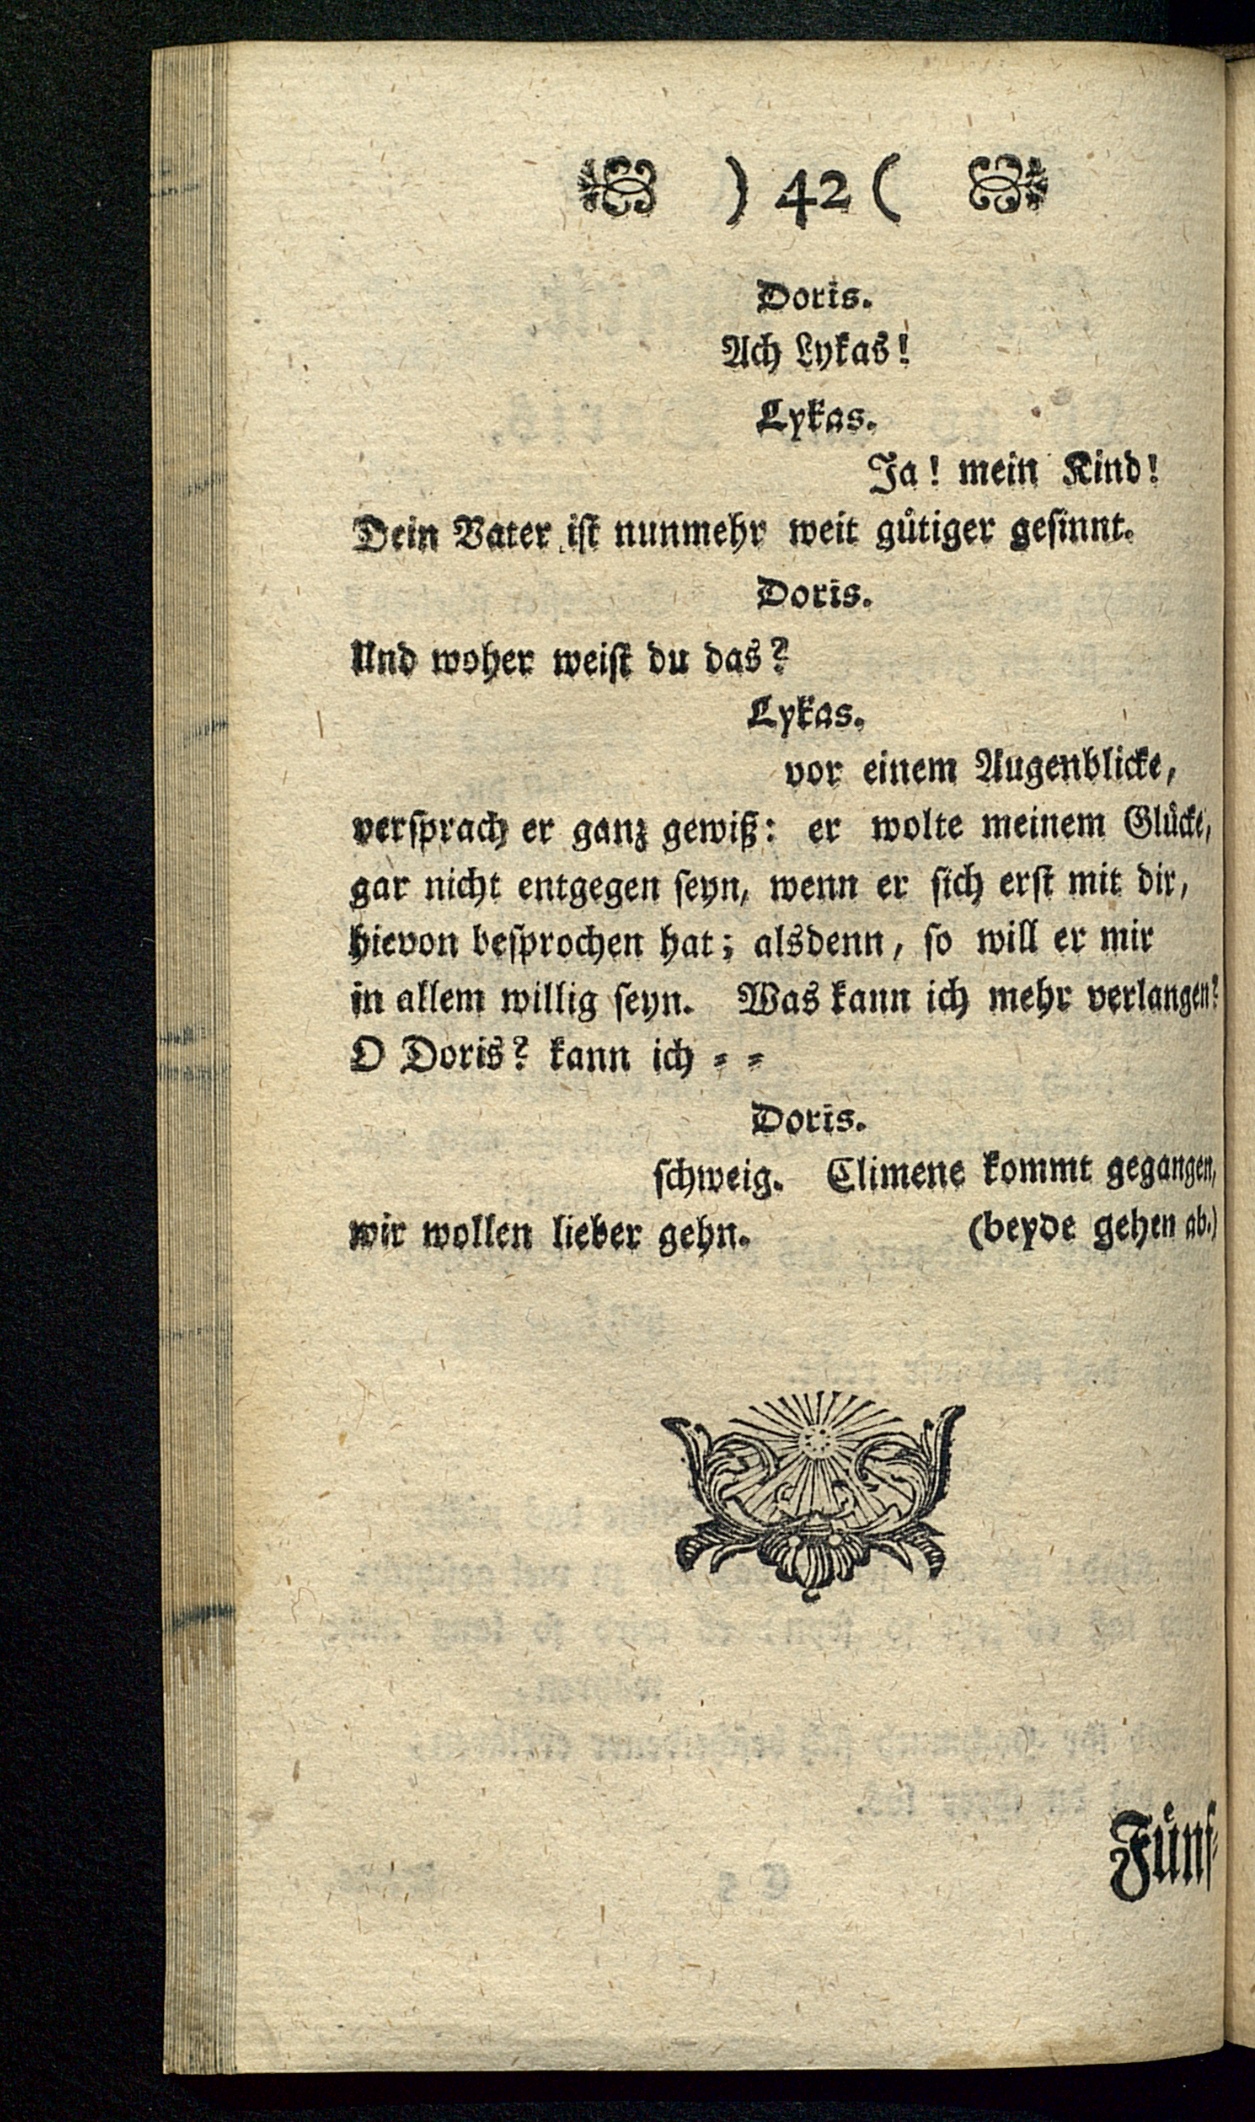 ) 42 (
Doris.
Ach Lykas!
Lykas.
Ja! mein Kind!
Dein Vater ist nunmehr weit gütiger gesinnt.
Doris.
Und woher weist du das?
Lykas.
vor einem Augenblicke,
versprach er ganz gewiß: er wolte meinem Glücke,
gar nicht entgegen seyn, wenn er sich erst mit dir,
hievon besprochen hat; alsdenn, so will er mir
in allem willig seyn. Was kann ich mehr verlangen?
O Doris? kann ich - -
Doris.
schweig. Climene kommt gegangen,
wir wollen lieber gehn. (beyde gehen ab.)
Fünf-